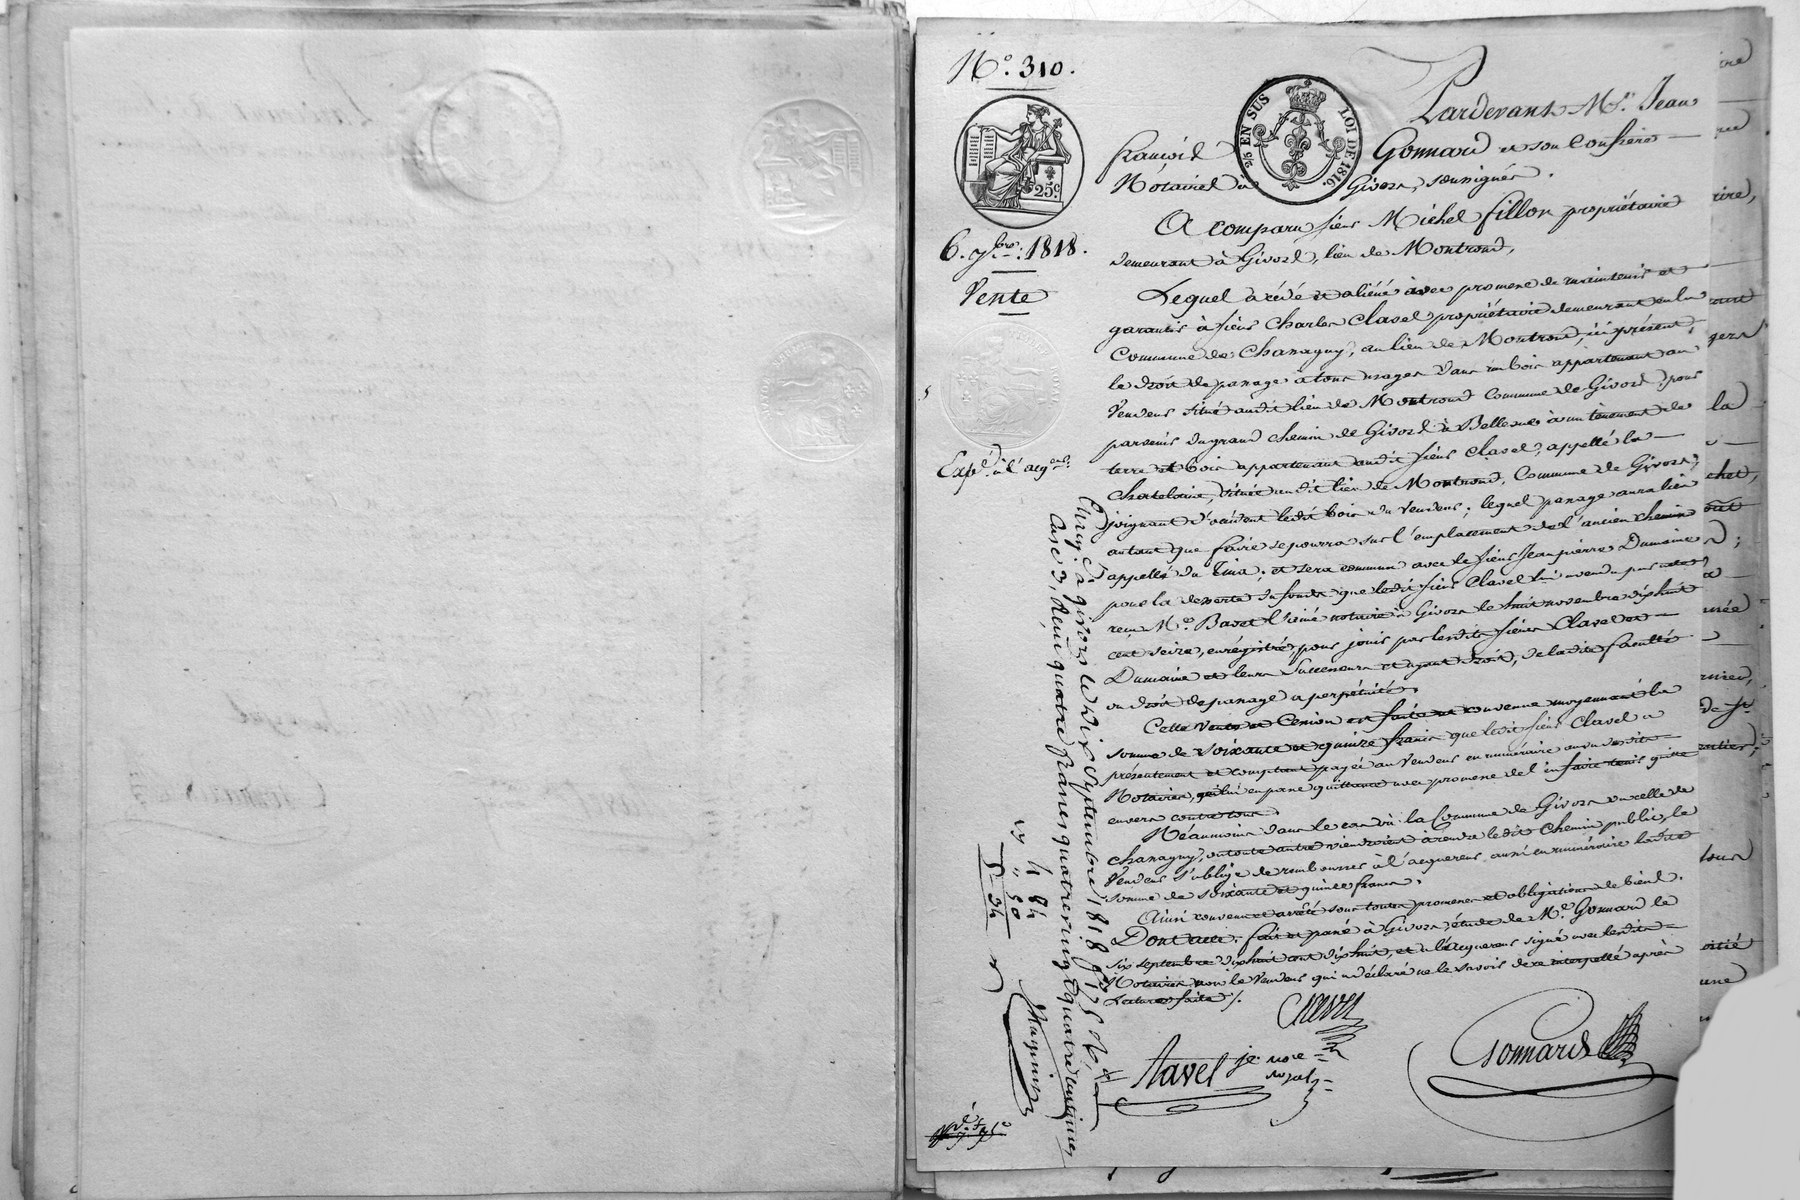 N.° 310.
25 c.
EN SUS LOI DE 1816.
6. 7bre. 1818.
Vente
Expé. à l'acq.
Pardevant Me. Jean
françois Gonnard et son Confrère
Notaires à Givors, soussignés.
A comparu sieur Michel fillon propriétaire
demeurant à Givors, lieu de Montrond,
Lequel a cédé et aliéné avec promesse de maintenir et
garantir à sieur Charles Clavel propriétaire demeurant en la
Commune de Chanagny, au lieu de Montrond, ici présent,
le droit de panage à tous usages dans un bois appartenant au
Vendeur situé audit lieu de Montrond Commune de Givors, pour
parvenir du grand Chemin de Givors à Bellevue à un tènement de
terre et bois appartenant audit sieur Clavel, appellé la
Chatelaine, situé audit lieu de Montrond, Commune de Givors,
joignant d'orient ledit bois du Vendeur; lequel panage aura lieu
autant que faire se pourra sur l'emplacement de l'ancien chemin
appellé du Tina; et sera commun avec le sieur Jean pierre Dumaine
pour la desserte du fonds que ledit sieur Clavel lui a vendu par acte
reçu Me. Bavet l'ainé notaire à Givors le huit novembre dix huit
cent seize, enregistré, pour jouir par lesdits sieurs Clavel et
Dumaine et leurs Successeurs et ayant droit, de ladite faculté
ou droit de panage a perpétuité.
Cette Vente et Cession est faite et convenue moyennant la
somme de soixante et quinze francs que ledit sieur Clavel a
présentement et comptant payé au Vendeur en numéraire au vu desdits
Notaires, qui lui en passe quittance avec promesse de l'en faire tenir quitte
envers et contre tous.
Néanmoins dans le cas où la Commune de Givors ou celle de
Chanagny, ou toute autre viendroient à rendre ledit Chemin public, le
Vendeur s'oblige de rembourser à l'acquereur aussi en numéraire ladite
somme de soixante et quinze francs.
Ainsi convenu et arrêté sous toutes promesses et obligations de biens.
Dont acte. fait et passé à Givors, étude de Me. Gonnard le
six septembre dix huit cent dix huit, et a l'acquereur signé avec lesdits
Notaires, non le Vendeur qui a déclaré ne le savoir de ce interpellé après
Lecture faite /.
Clavel
Gonnard
Enreg.é à givors le dix Septembre 1818 f.°
Case 3, Reçu quatre francs quatre vingt quatre centimes
4 84
" 50
5 34